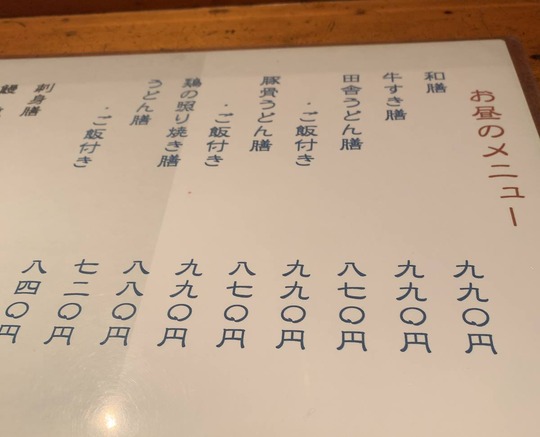 お昼のメニュー
和膳 九九〇円
牛すき膳 九九〇円
田舎うどん膳 八七〇円
・ご飯付き 九九〇円
うどん膳 八七〇円
・ご飯付き 九九〇円
鶏の照り焼き膳 八八〇円
うどん膳 七二〇円
・ご飯付き 八四〇円
刺身膳